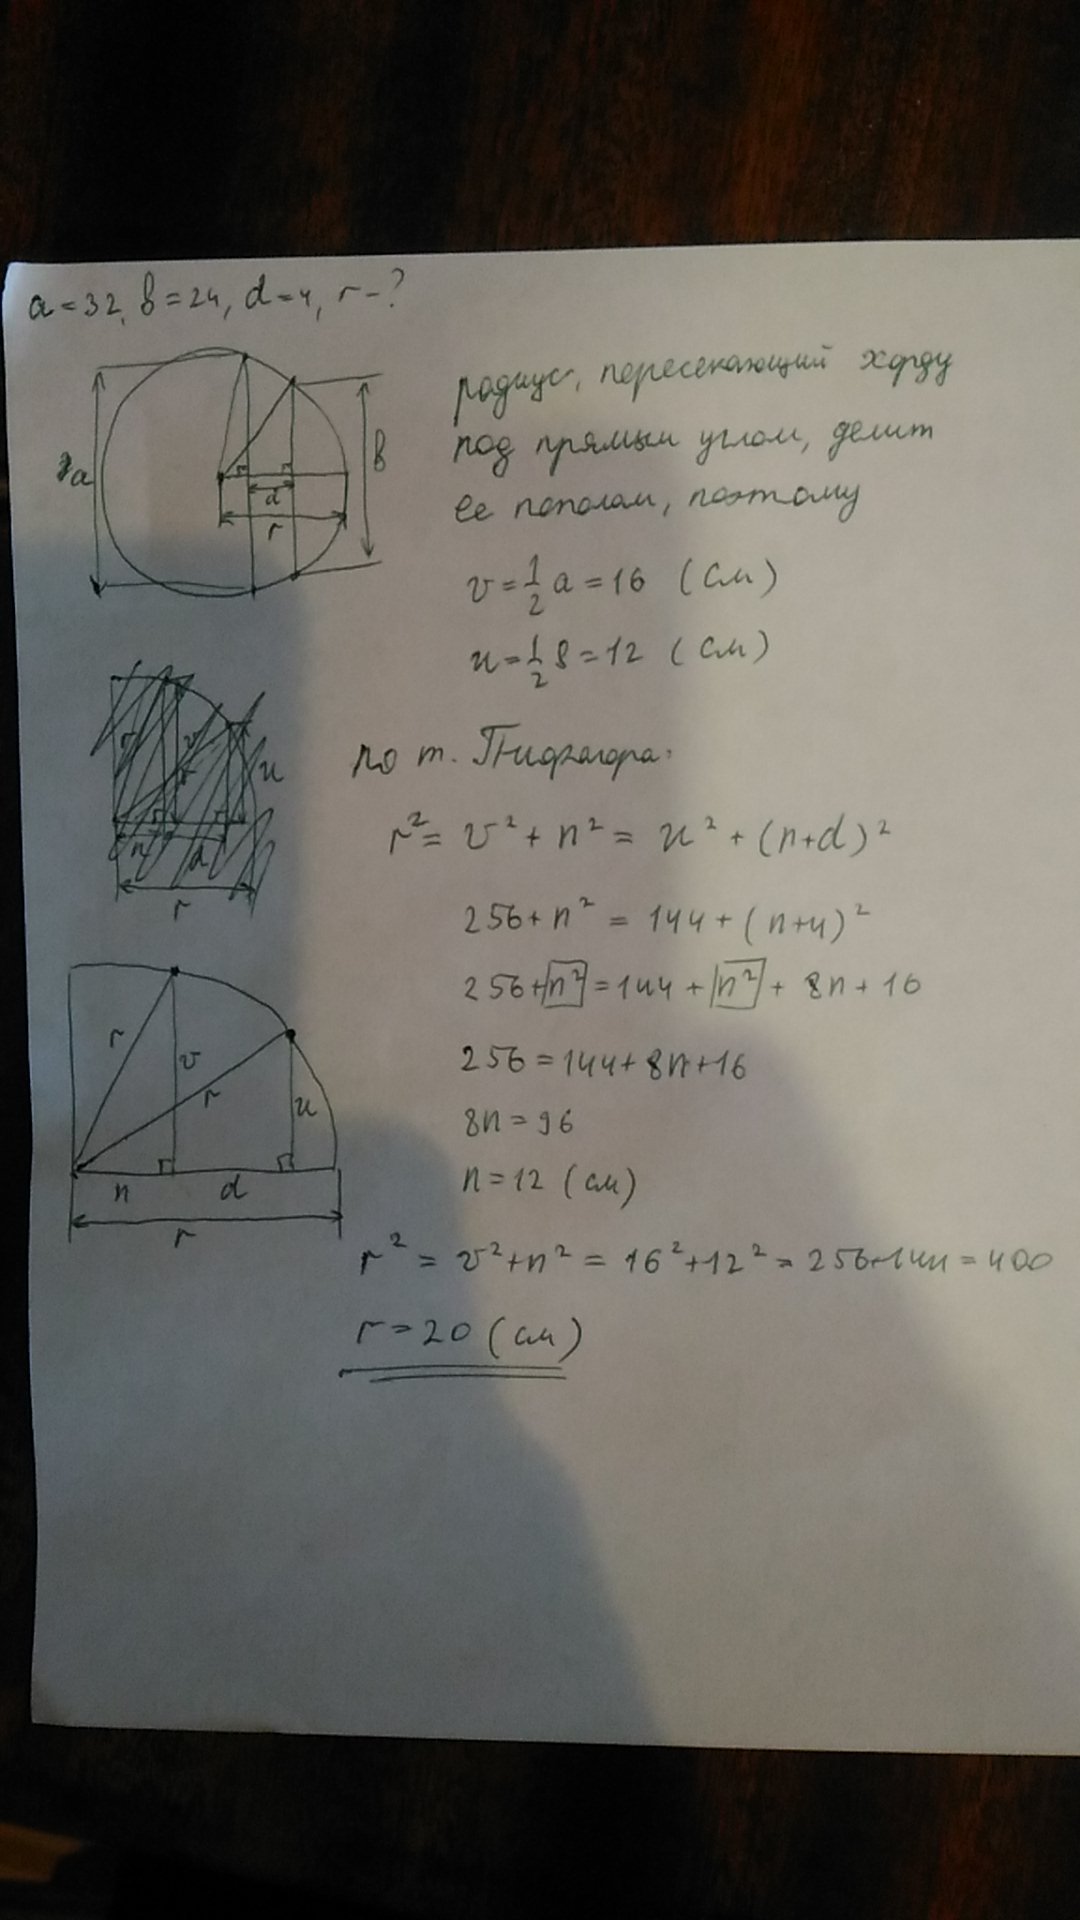 a = 32, b = 24, d = 4, r - ?
a
b
d
r
радиус, пересекающий хорду
под прямым углом, делит
ее пополам, поэтому
v = 1/2 a = 16 (см)
u = 1/2 b = 12 (см)
u
n
d
r
по т. Пифагора:
r² = v² + n² = u² + (n+d)²
256 + n² = 144 + (n+4)²
256 + n² = 144 + n² + 8n + 16
256 = 144 + 8n + 16
8n = 96
n = 12 (см)
r
v
r
u
n
d
r
r² = v² + n² = 16² + 12² = 256 + 144 = 400
r = 20 (см)